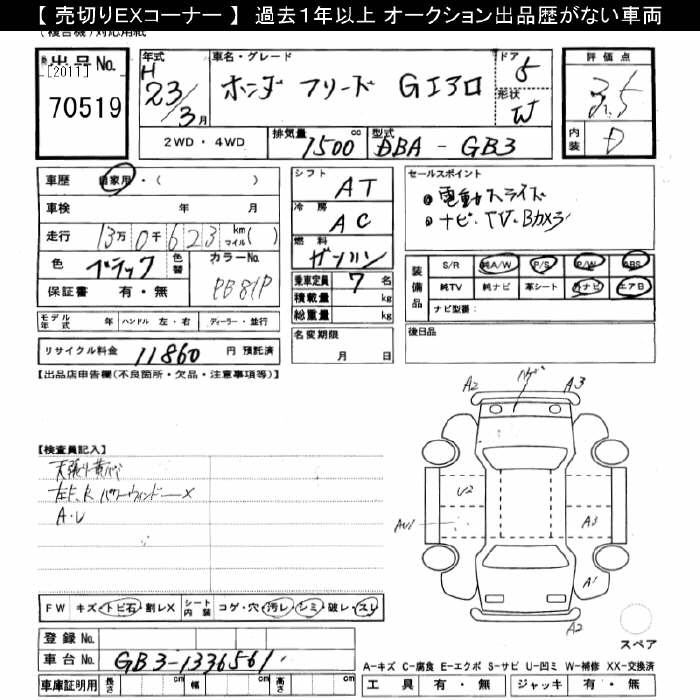 【 売切りEXコーナー 】 過去1年以上 オークション出品歴がない車両
出品No.
[2011]
70519
年式
H 23/3月
車名・グレード
ホンダ フリード Gエアロ
ドア
5
形状
W
評価点
3.5
内装
D
2WD・4WD
排気量
1500 cc
型式
DBA - GB3
車歴 自家用・( )
車検 年 月
走行 13万0千623 km マイル( )
色 ブラック
色替
カラーNo.
PB81P
保証書 有・無
シフト
AT
冷房
AC
燃料
ガソリン
乗車定員 7 名
積載量 kg
総重量 kg
セールスポイント
電動スライド
ナビ・TV・Bカメラ
装備品
S/R 純A/W P/S P/W ABS
純TV 純ナビ 革シート 外ナビ エアB
ナビ型番:
モデル年式 年 ハンドル 左・右 ディーラー・並行
名変期限
月 日
後日品
リサイクル料金 11860 円 預託済
【出品店申告欄(不良箇所・欠品・注意事項等)】
A2 ハゲ A3
【検査員記入】
天張り黄バミ
左F.R パワーウィンドーX
A・U
U2
AU1
A3
A1
A2
FW キズ・トビ石・割レX
シート内装 コゲ・穴・汚レ・シミ・破レ・スレ
登録 No.
車台 No. GB3-1336561
車庫証明用 長さ cm 幅 cm 高さ cm
スペア
A-キズ C-腐食 E-エクボ S-サビ U-凹ミ W-補修 XX-交換済
工具 有・無 ジャッキ 有・無